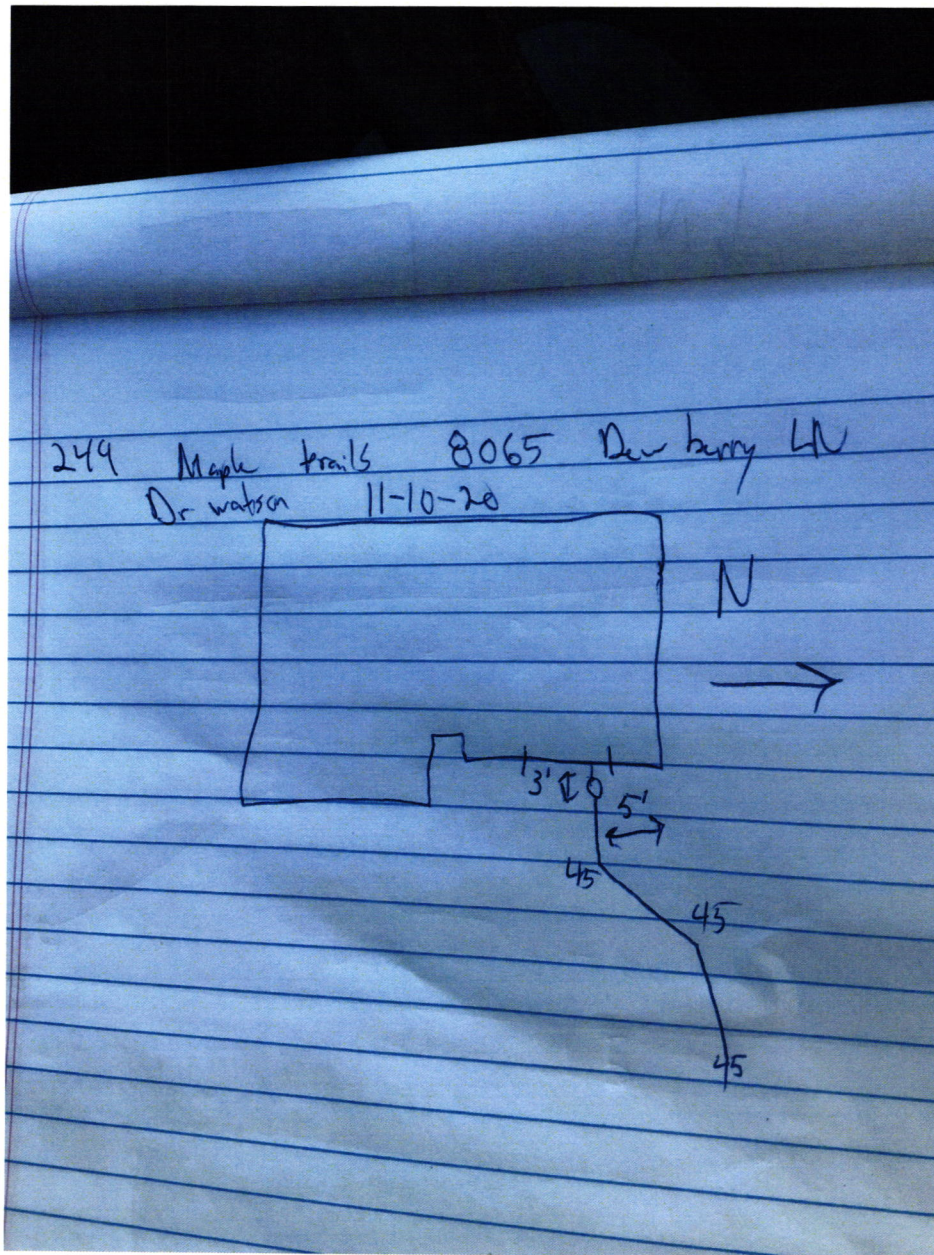 249 Maple trails 8065 Dew berry LN
Dr watson 11-10-20
N
3'
5'
45
45
45